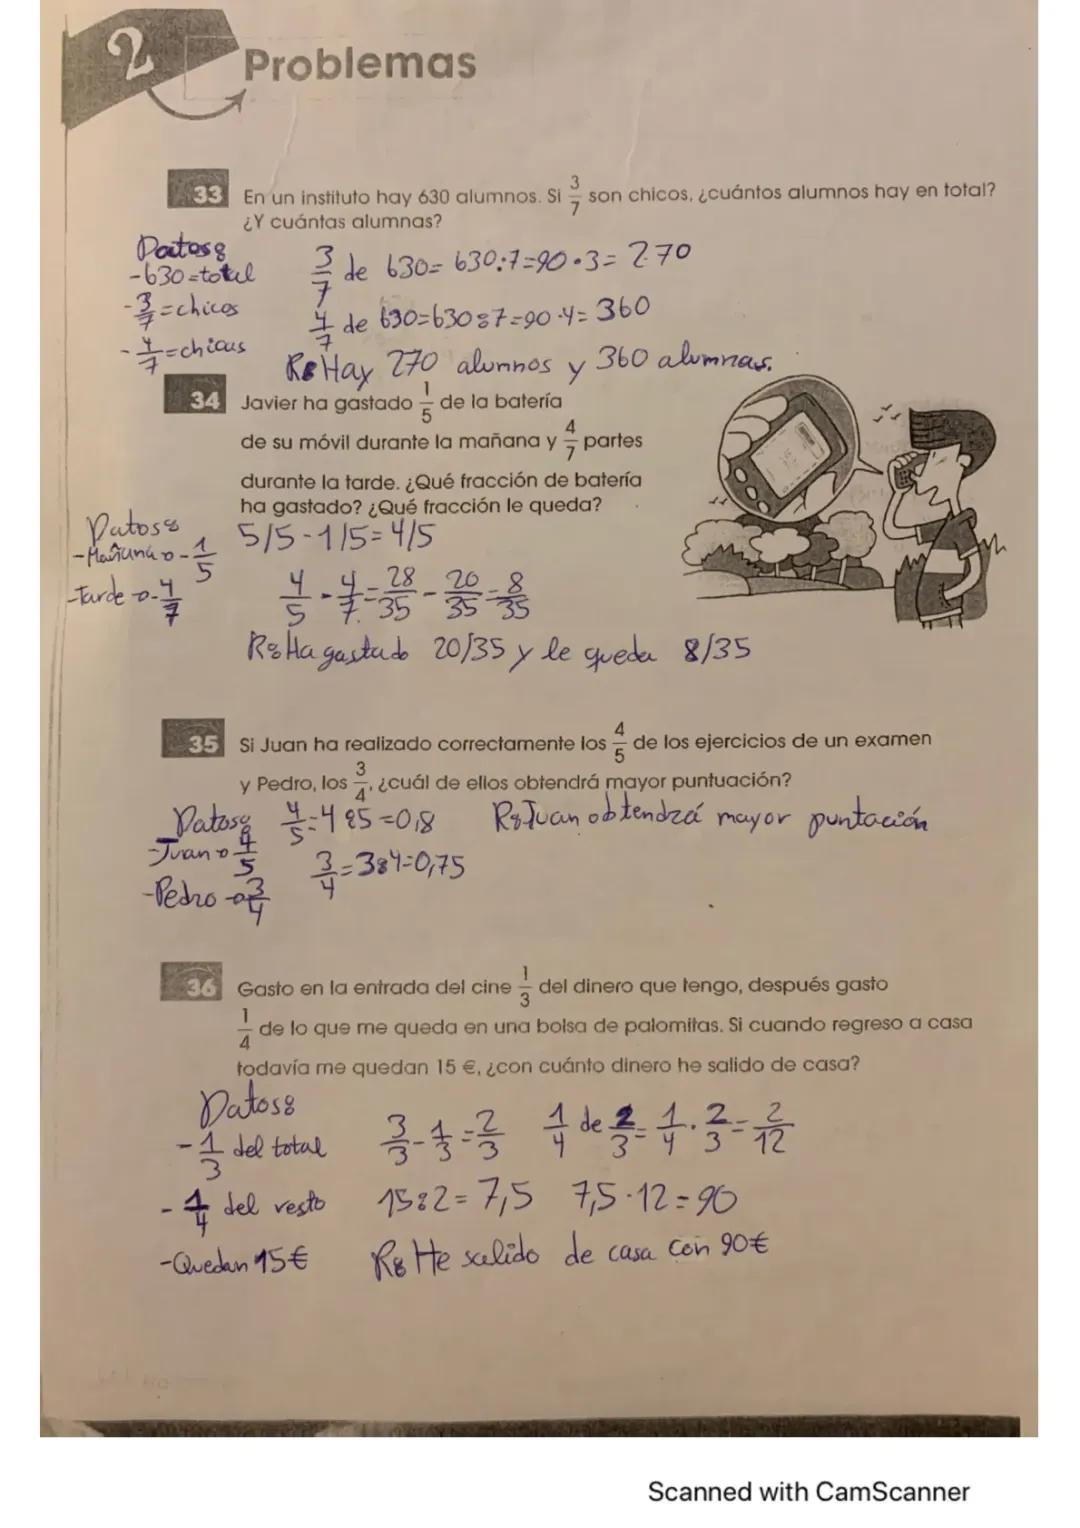 2
Problemas
33 En un instituto hay 630 alumnos. Si 3/7 son chicos, ¿cuántos alumnos hay en total?
¿Y cuántas alumnas?
Datos:
-630=total
-3/7=chicos
-4/7=chicas
3/7 de 630= 630:7=90·3= 270
4/7 de 630=630:7=90·4= 360
R: Hay 270 alumnos y 360 alumnas.
34 Javier ha gastado 1/5 de la batería
de su móvil durante la mañana y 4/7 partes
durante la tarde. ¿Qué fracción de batería
ha gastado? ¿Qué fracción le queda?
Datos:
-Mañana→-1/5
-Tarde→-4/7
5/5-1/5=4/5
4/5-4/7=28/35-20/35=8/35
R: Ha gastado 20/35 y le queda 8/35
35 Si Juan ha realizado correctamente los 4/5 de los ejercicios de un examen
y Pedro, los 3/4, ¿cuál de ellos obtendrá mayor puntuación?
Datos:
-Juan→4/5
-Pedro→3/4
4/5=4:5=0,8
3/4=3:4=0,75
R: Juan obtendrá mayor puntación
36 Gasto en la entrada del cine 1/3 del dinero que tengo, después gasto
1/4 de lo que me queda en una bolsa de palomitas. Si cuando regreso a casa
todavía me quedan 15 €, ¿con cuánto dinero he salido de casa?
Datos:
-1/3 del total
-1/4 del resto
-Quedan 15€
3/3-1/3=2/3 1/4 de 2/3=1/4·2/3=2/12
15:2=7,5 7,5·12=90
R: He salido de casa con 90€
Scanned with CamScanner